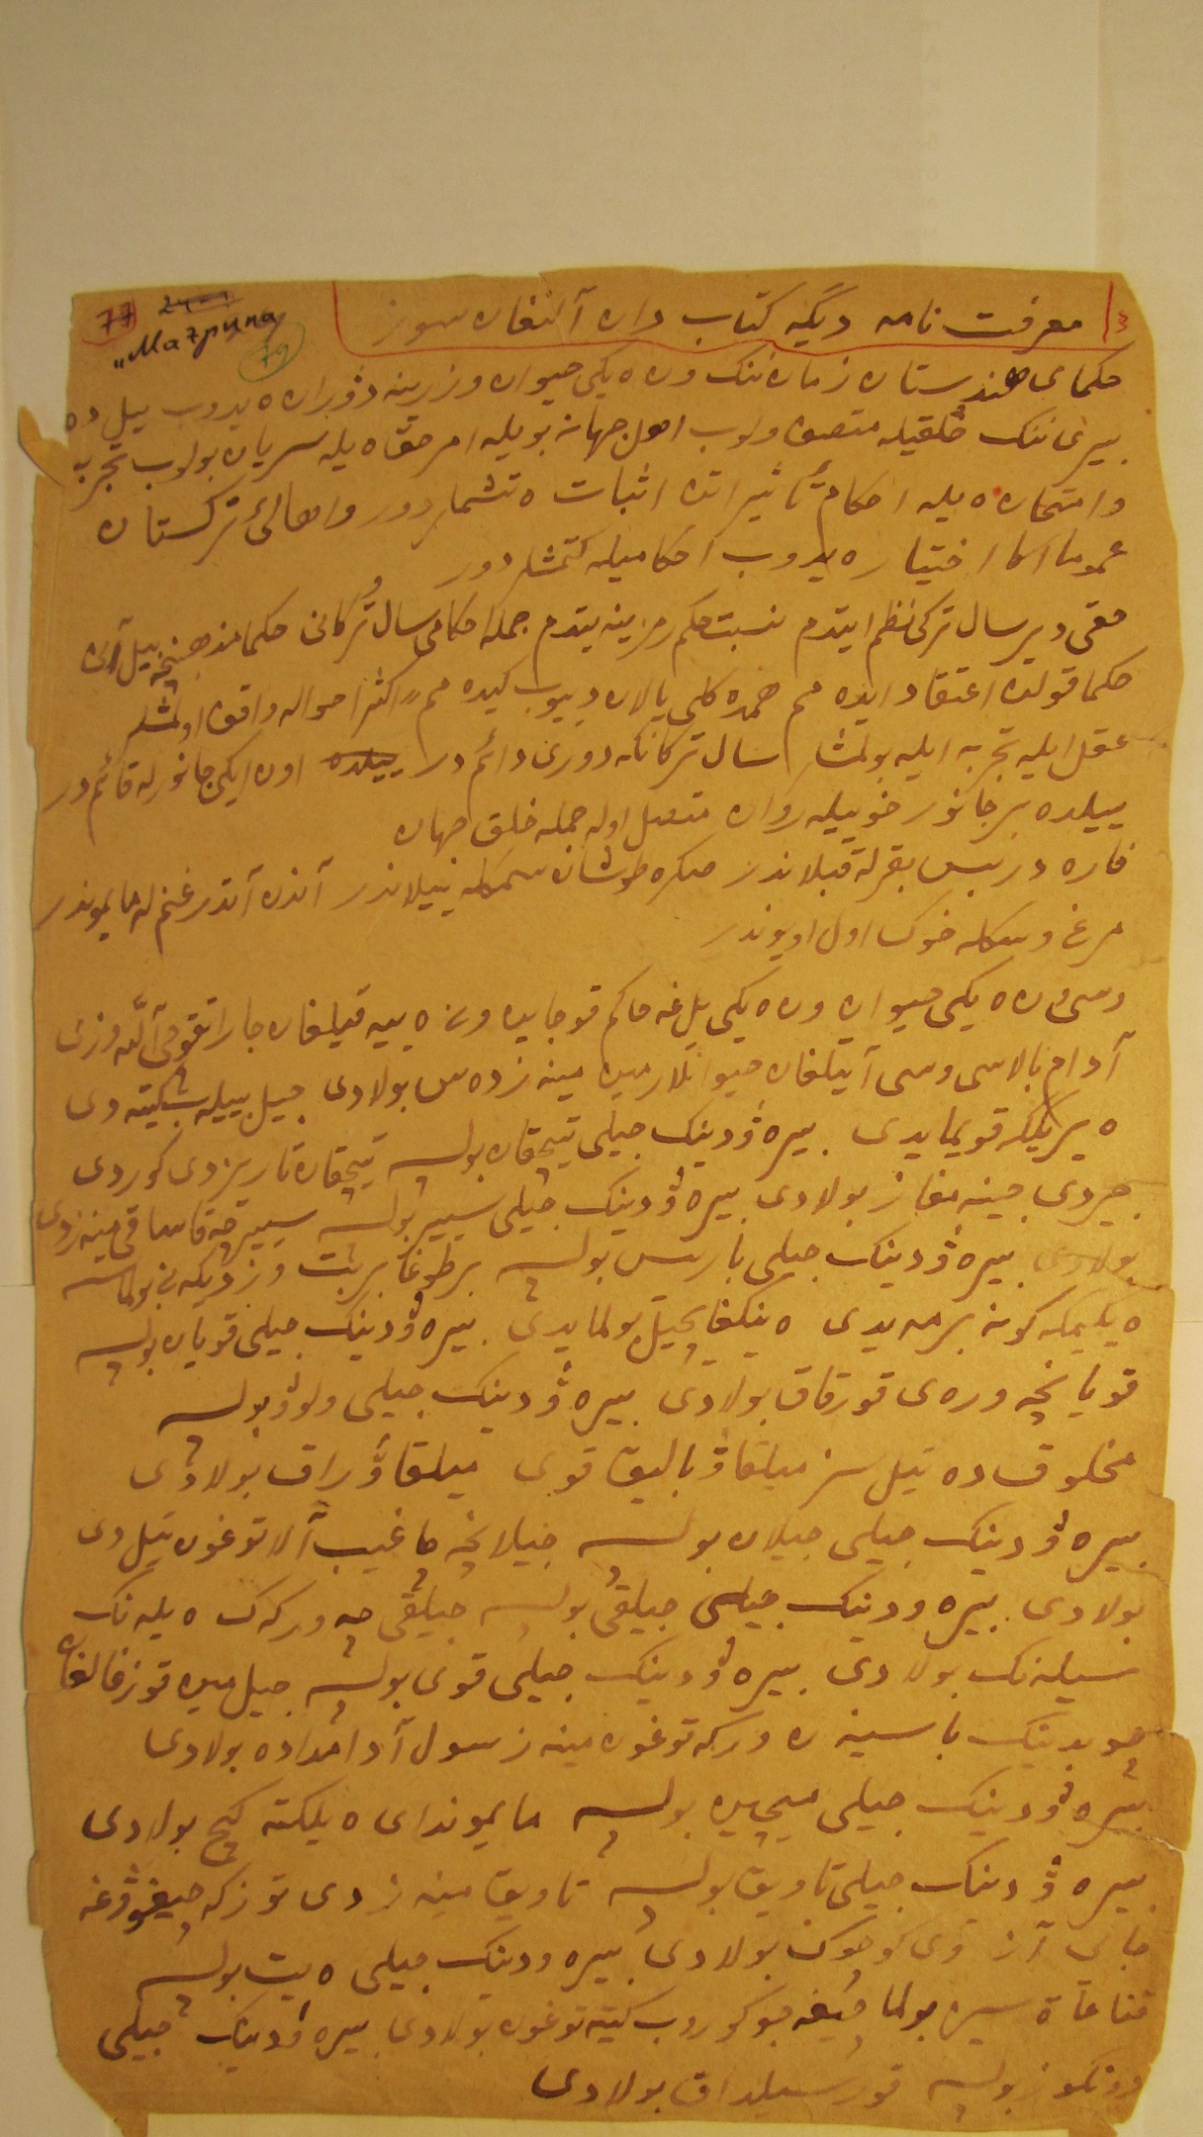 77
79
"Магрипа"
معرفت نامه دیگه کتاب دان آلنغان سوز
حکمای هندستان زمان ننک ون ه یکی حیوان وزرینه دۋران ه یدوب ییل ده
بیری ننک خلقیله متصف ولوب اهل جهانه بویله امر حق ه یله سریان بولوب تجربه
وامتحان ه یله احکام تأثیراتن اثبات ه تشملر دور واهالئ ترکستان
عموما اکا اختیار ه یدوب احکامیله کتمشلر دور
حقی دیر سال ترکی نظم ایتدم نسبت حکم رمزینه یتدم جمله احکامی سال ترکانی حکما مذهبنجه بیل آنی
حکما قولنه اعتقاد ایده مم همده کلی یالان دییوب کیده مم اکثر احواله واقع اولمشلر
عقل ایله تجربه ایله بولمشلر سال ترکانکه دوری دائم در ییلده اون ایکی جانورله قائم در
ییلده بر جانور خوییله روان متصل اوله جمله خلق جهان
فاره در پس بقرله قبلاندر صکره طوشان سمکله ییلاندر آندن آتدر غنم له مایموندر
مرغ وسکله خوک اول اویوندر
وسی ون ه یکی حیوان ون ه یکی یل غه حاکم قوجایین ون ه ییه قیلغان جاراتقوچی آلله وزی
آدام بالاسی وسی آیتلغان حیوانلارمین مینه زده س بولادی جیل ییله ب کیته دی
ه یریککه قویمایدی بیره ۋدینک جیلی تیچقان بولسه تیچقان تاریزدی کوردی
جیردی جینه مغاز بولادی بیره ۋدینک جیلی سییر بولسه سییرچه قاساقی مینه زدی
بولادی بیره ۋدینک جیلی بارس بولسه برطوغا بربت وزدیکه نی بولماسه
ه یلیمکه کونه برمه یدی ه ینکغایجیل بولمایدی بیره ۋدینک جیلی قویان بولسه
قویانچه وره ی قورقاق بولادی بیره ۋدینک جیلی ولوۋ بولسه
مخلوق ده تیل سز میلقاۋ بالیق قوی میلقاۋراق بولادی
بیره ۋدینک جیلی جیلان بولسه جیلانچه ماغیب آلا توغون تیل دی
بولادی بیره ودینک جیلی جیلقی بولسه جیلقی چه ورکه ک ه یله نک
سیله نک بولادی بیره ۋدینک جیلی قوی بولسه جیل مین قوزغالغان
قویدینک باسینه ن ورکه توغون مینه زسول آدامداده بولادی
بیره ۋدینک جیلی میچین بولسه مایموندای ه یلکته کیچ بولادی
بیره ۋدینک جیلی تاویق بولسه تاویق مینه زدی توزکه جیغۋغه
مالی آز وی کوچوک بولادی بیره ودینک جیلی ه یت بولسه
قناعاة سیز بولما جوکوروب کیته توغون بولادی بیره ۋدینک جیلی
دونکوز بولسه قورسیلداق بولادی